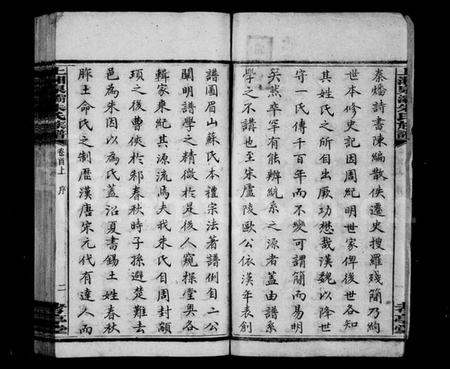 秦燔詩書陳編散佚遷史搜羅殘簡乃絢
世本修史記因周紀明世家俾後世各知
其姓氏之所自出厥功懋哉漢魏以降世
守一氏傳千百年而不變可謂簡而易明
矣然卒罕有能辨統系之源者蓋由譜系
學之不講也至宋盧陵歐公依漢年表創
譜圖眉山蘇氏本禮宗法著譜例自二公
闡明譜學之精微於是後人窺探堂奥各
輯家乘紀其源流焉夫我朱氏自周封顓
頊之後曹俠於邾春秋時子孫避楚難去
邑為朱因以為氏蓋沿夏書錫土姓春秋
胙土命氏之制歷漢唐宋元代有達人而
氏族譜
卷首上
序
二